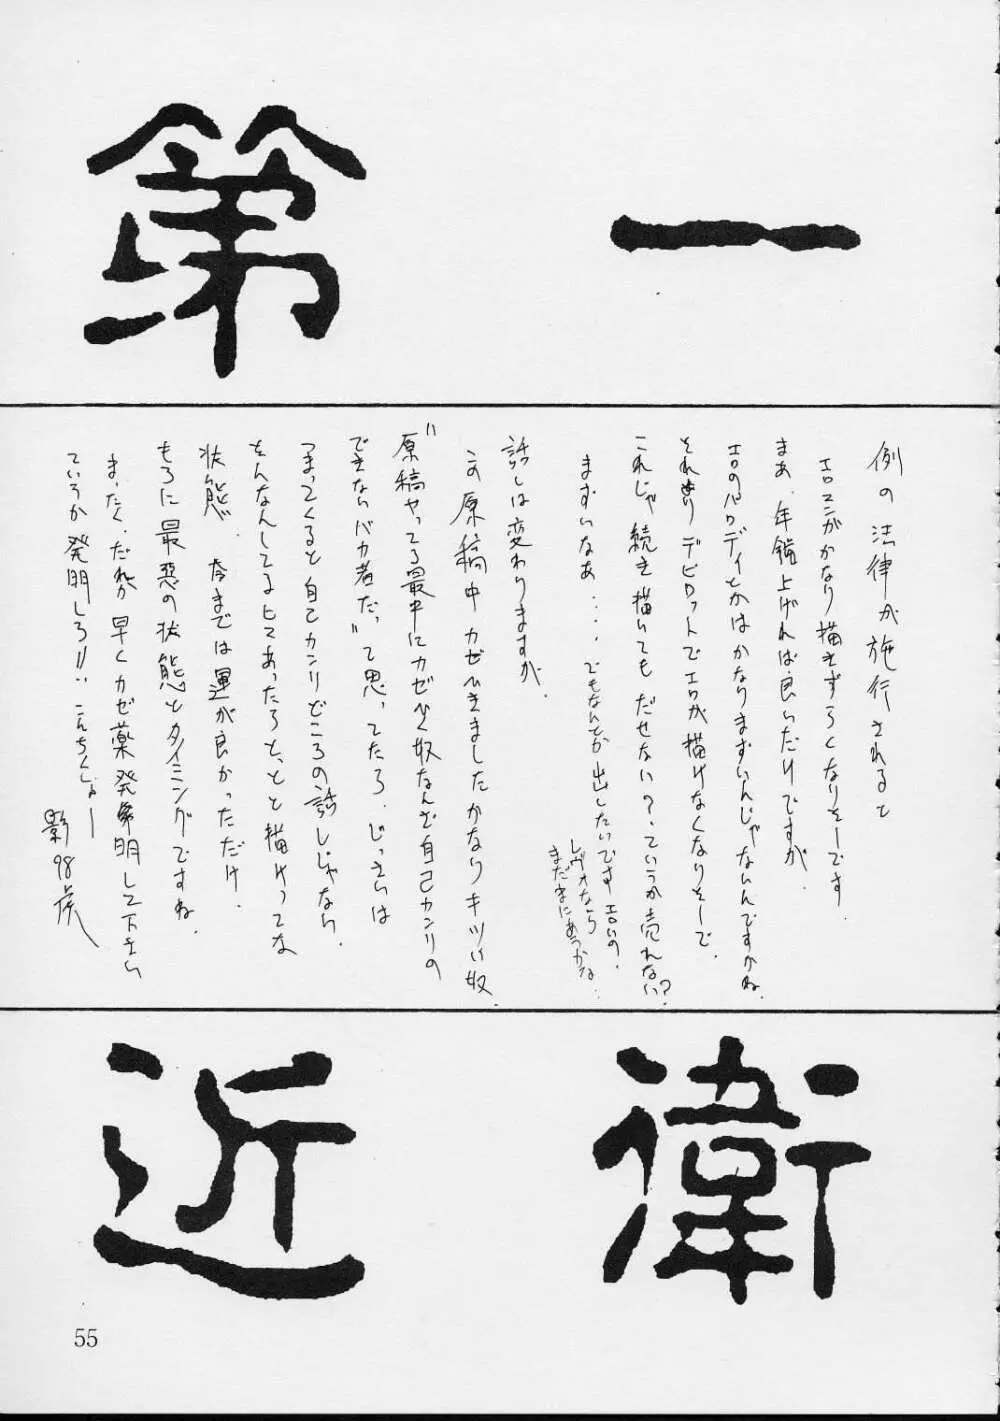 第一
例の法律が施行されると
エロマンがかなり描きずらくなりそーです.
まあ、年齢上げれば良いだけですが.
エロのパロディとかはかなりまずいんじゃないんですかね.
それよりデビロットでエロが描けなくなりそーで.
これじゃ続き描いてもだせない?ていうか売れない?
まずいなぁ....でもなんとか出したいです エロいの.
レヴォなら
まだまにあうかな..
話しは変わりますが.
この原稿中カゼひきましたかなりキツい奴.
"原稿やってる最中にカゼひく奴なんぞ自己カンリの
できないバカ者だ"って思ってたら.じっさいは
つまってくると自己カンリどころの話しじゃなら.
をんなんしてるヒマあったらとっとと描けってな
状態.今までは運が良かっただけ.
もろに最悪の状態とタイミングですね.
まったく.だれか早くカゼ薬発明して下さい
ていうか発明しろ!! こんちくしょー
影98
近衛
55